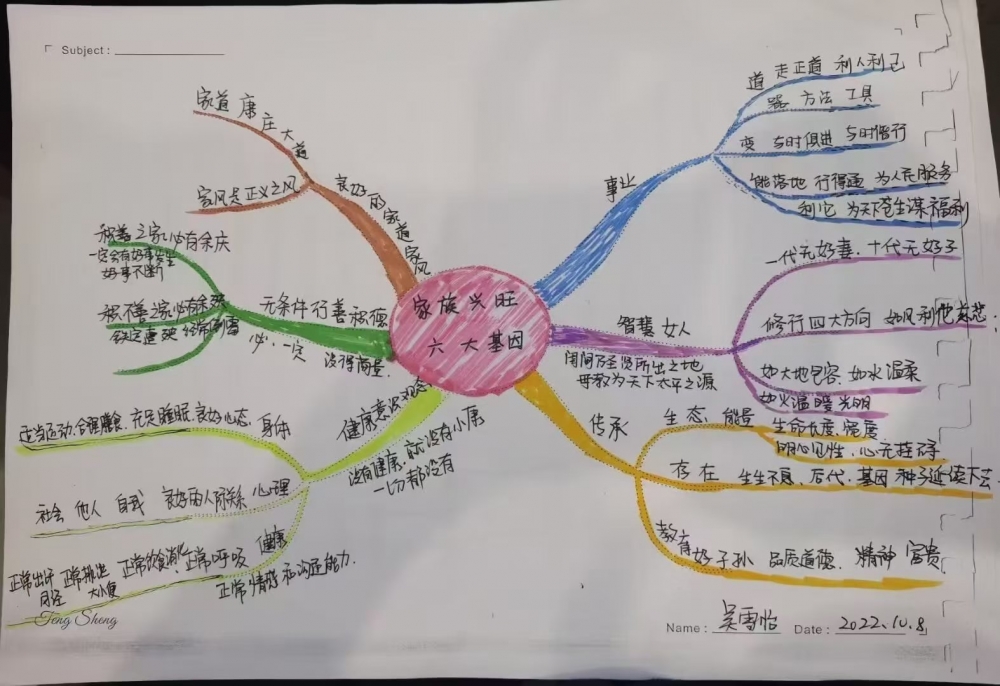 Subject:
家族兴旺
六大基因
事业
道 走正道 利人利己
器 方法 工具
变 与时俱进 与时偕行
能落地 行得通 为人民服务
利他 为天下苍生谋福利
智慧女人
闺阃乃圣贤所出之地
母教为天下太平之源
一代无好妻.十代无好子
修行四大方向 如风利他
如大地包容.如水温柔
如火温暖光明
传承
生态 能量
生命长度.强度
明心见性.心无挂碍
存在 生生不息.后代.基因种子延续下去
教育 好子孙 品质道德.精神 富贵
良好的家道家风
家道康庄大道
家风是正义之风
无条件行善积德
必.一定
没得商量.
积善之家必有余庆
一定会有好事发生
好事不断
积不善之家必有余殃
健康意识观念
没有健康.就没有小康
一切都没有
身体
适当运动.合理膳食.充足睡眠.良好心态.
心理
社会 他人 自我 良好的人际关系
健康
正常出汗 正常排泄 正常饮食消化 正常呼吸
月经 大小便
正常情感和沟通能力.
Feng Sheng
Name: 吴雪怡 Date: 2022.10.8